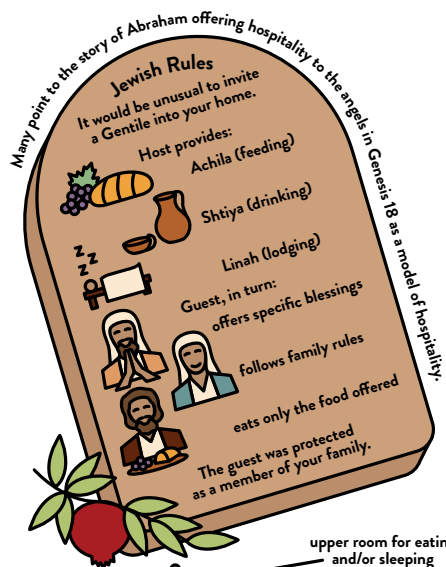 Many point to the story of Abraham offering hospitality to the angels in Genesis 18 as a model of hospitality.
Jewish Rules
It would be unusual to invite
a Gentile into your home.
Host provides:
Achila (feeding)
Shtiya (drinking)
z z z z
Linah (lodging)
Guest, in turn:
offers specific blessings
follows family rules
eats only the food offered
The guest was protected
as a member of your family.
upper room for eatin
and/or sleeping